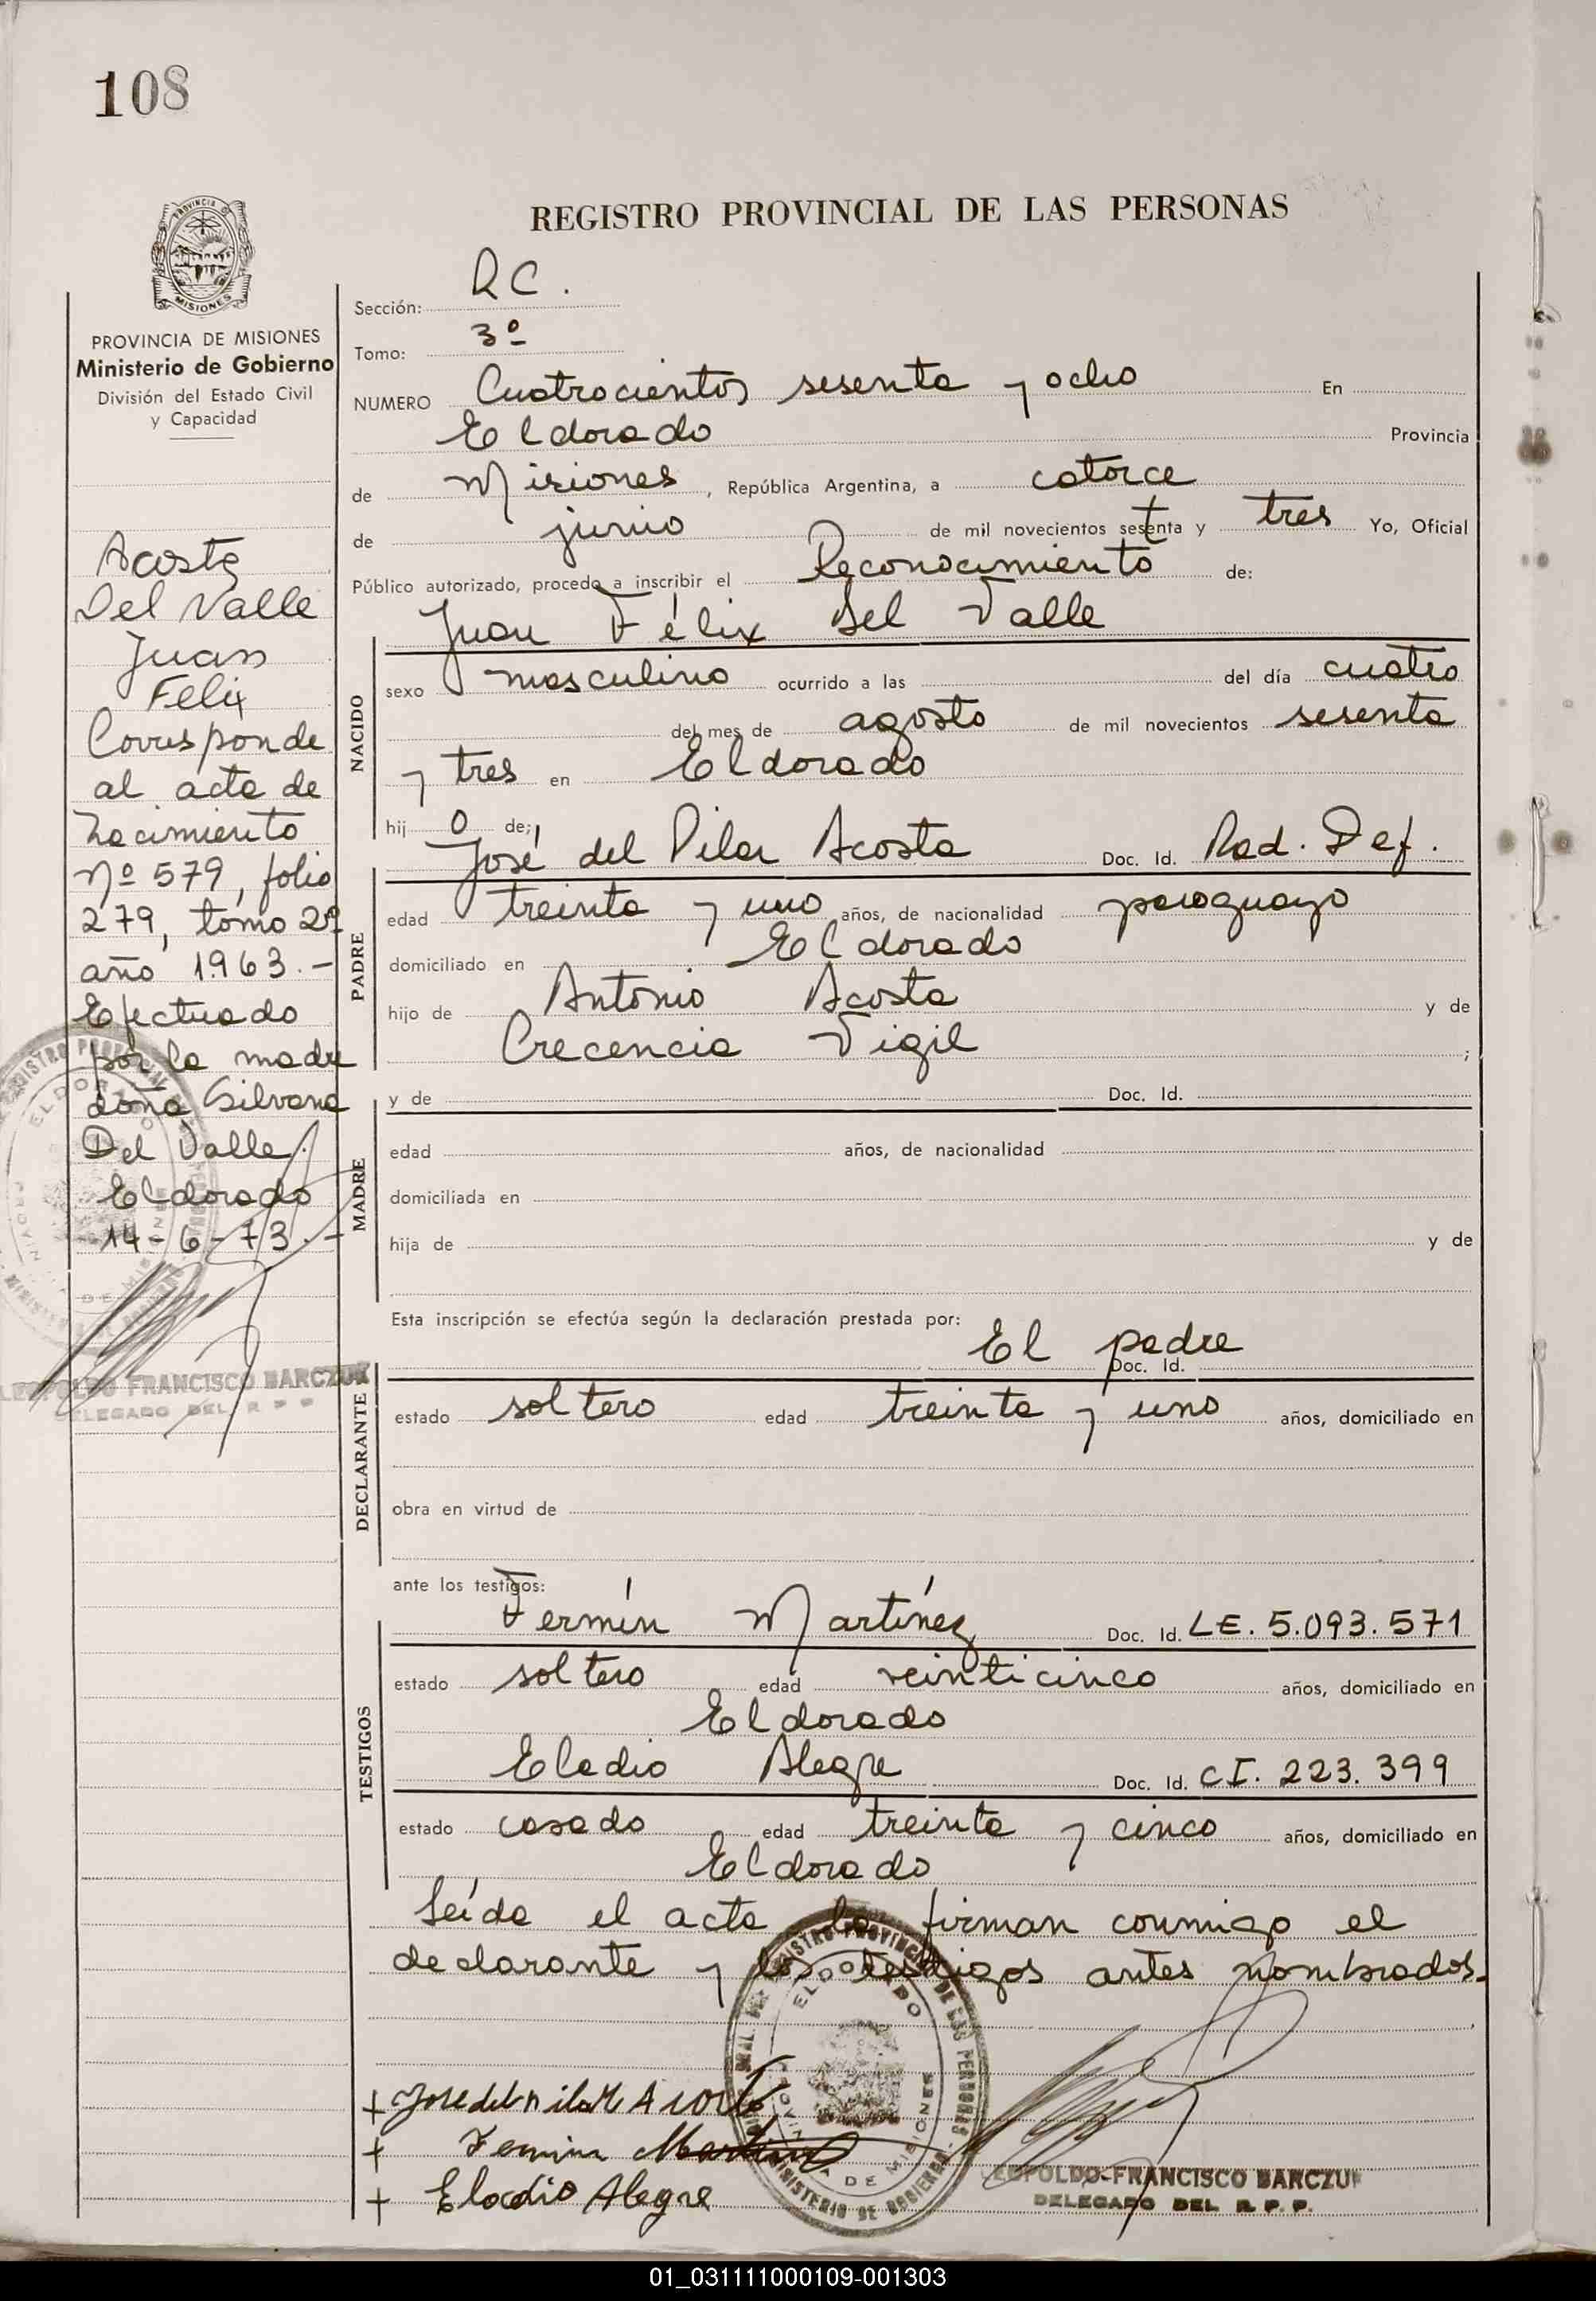 108
REGISTRO PROVINCIAL DE LAS PERSONAS
PROVINCIA DE MISIONES
Ministerio de Gobierno
División del Estado Civil
y Capacidad
Acosta
Del Valle
Juan
Felix
Corresponde
al acta de
nacimiento
Nº 579, folio
279, tomo 2º
año 1963.-
Efectuado
por la madre
doña Silvana
Del Valle.
Eldorado
14-6-73.-
LEOPOLDO FRANCISCO BARCZUK
DELEGADO DEL R P P
Sección: RC.
Tomo: 3º
NUMERO Cuatrocientos sesenta y ocho En
Eldorado Provincia
de Misiones, República Argentina, a catorce
de junio de mil novecientos setenta y tres Yo, Oficial
Público autorizado, procedo a inscribir el Reconocimiento de:
Juan Félix del Valle
NACIDO
sexo masculino ocurrido a las del día cuatro
del mes de agosto de mil novecientos sesenta
y tres en Eldorado
hijo de;
José del Pilar Acosta Doc. Id. Rad. Def.
PADRE
edad treinta y uno años, de nacionalidad paraguayo
domiciliado en Eldorado
hijo de Antonio Acosta y de
Crecencia Vigil ;
MADRE
y de Doc. Id.
edad años, de nacionalidad
domiciliada en
hija de y de
Esta inscripción se efectúa según la declaración prestada por:
El padre Doc. Id.
DECLARANTE
estado soltero edad treinta y uno años, domiciliado en
obra en virtud de
ante los testigos:
Fermín Martínez Doc. Id. LE. 5.093.571
TESTIGOS
estado soltero edad veinticinco años, domiciliado en
Eldorado
Eladio Alegre Doc. Id. CI. 223.399
estado casado edad treinta y cinco años, domiciliado en
Eldorado
Leída el acta la firman conmigo el
declarante y los testigos antes nombrados.
ELDORADO
PROVINCIA DE MISIONES
+ Jose del Pilar Acosta
+ Fermin Martinez
+ Eladio Alegre
LEOPOLDO-FRANCISCO BARCZUK
DELEGADO DEL R. P. P.
01_031111000109-001303